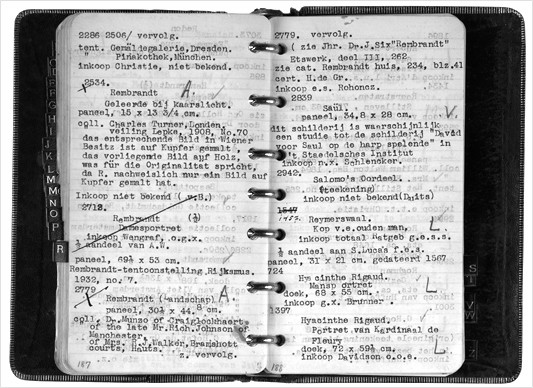 2286 2506/ vervolg.
tent. Gemäldegalerie, Dresden.
" Pinakothek, München.
inkoop Christie, niet bekend.
2534.
Rembrandt A.
Geleerde bij kaarslicht.
paneel, 15 x 13 3/4 cm.
coll. Charles Turner, Londen.
veiling Lepke, 1908, No. 70
das entsprechende Bild im Wiener
Besitz ist auf Kupfer gemalt
das vorliegende Bild auf Holz,
was für die Originalität spricht,
da R. nachweislich nur ein Bild auf
Kupfer gemalt hat.
Inkoop niet bekend (v.B.)
2718.
Rembrandt (½)
Damesportret
inkoop Wangraf, o.g.x.
½ aandeel van A.W.
paneel, 69½ x 53 cm.
Rembrandt-tentoonstelling, Rijksmus.
1932, no. 7.
2779
Rembrandt (Landschap) A.
paneel, 30½ x 44.8 cm.
coll. Dr. Munzo of Craiglockhaerts
of the late Mr. Rich. Johnson of
Manchester
of Mrs. S.J. Walker, Bramshott
courts, Hants.
z. vervolg.
187
2779. vervolg.
( zie Jhr. Dr. J. Six "Rembrandt"
Etswerk, deel III, 262
zie cat. Rembrandt huis, 234, blz. 41
cert. H. de Gr.
inkoop e.s. Rohoncz.
2839
Saul. V.
paneel, 34,8 x 28 cm.
dit schilderij is waarschijnlijk
een studie tot de schilderij "David
voor Saul op de harp spelende" in
't Staedelsches Institut
inkoop n.x. Schlenoker.
2942
Salomo's Oordeel.
(teekening)
inkoop niet bekend
1547
Reymerswaal. L
Kop v.e. ouden man,
inkoop totaal Hatgeb g.e.s.s.
½ aandeel aan S. Lucas f.e.a.
paneel, 31 x 21 cm. gedateerd 1567
724
Hyacinthe Rigaud. L
Mansportret
doek, 68 x 55 cm.
inkoop g.x. Brunner.
1397
Hyacinthe Rigaud.
Portret van Kardinaal de
Fleury L
doek, 72 x 59½ cm.
inkoop Davidson o.o.e.
188
H
I
J
K
L
M
N
O
P
R